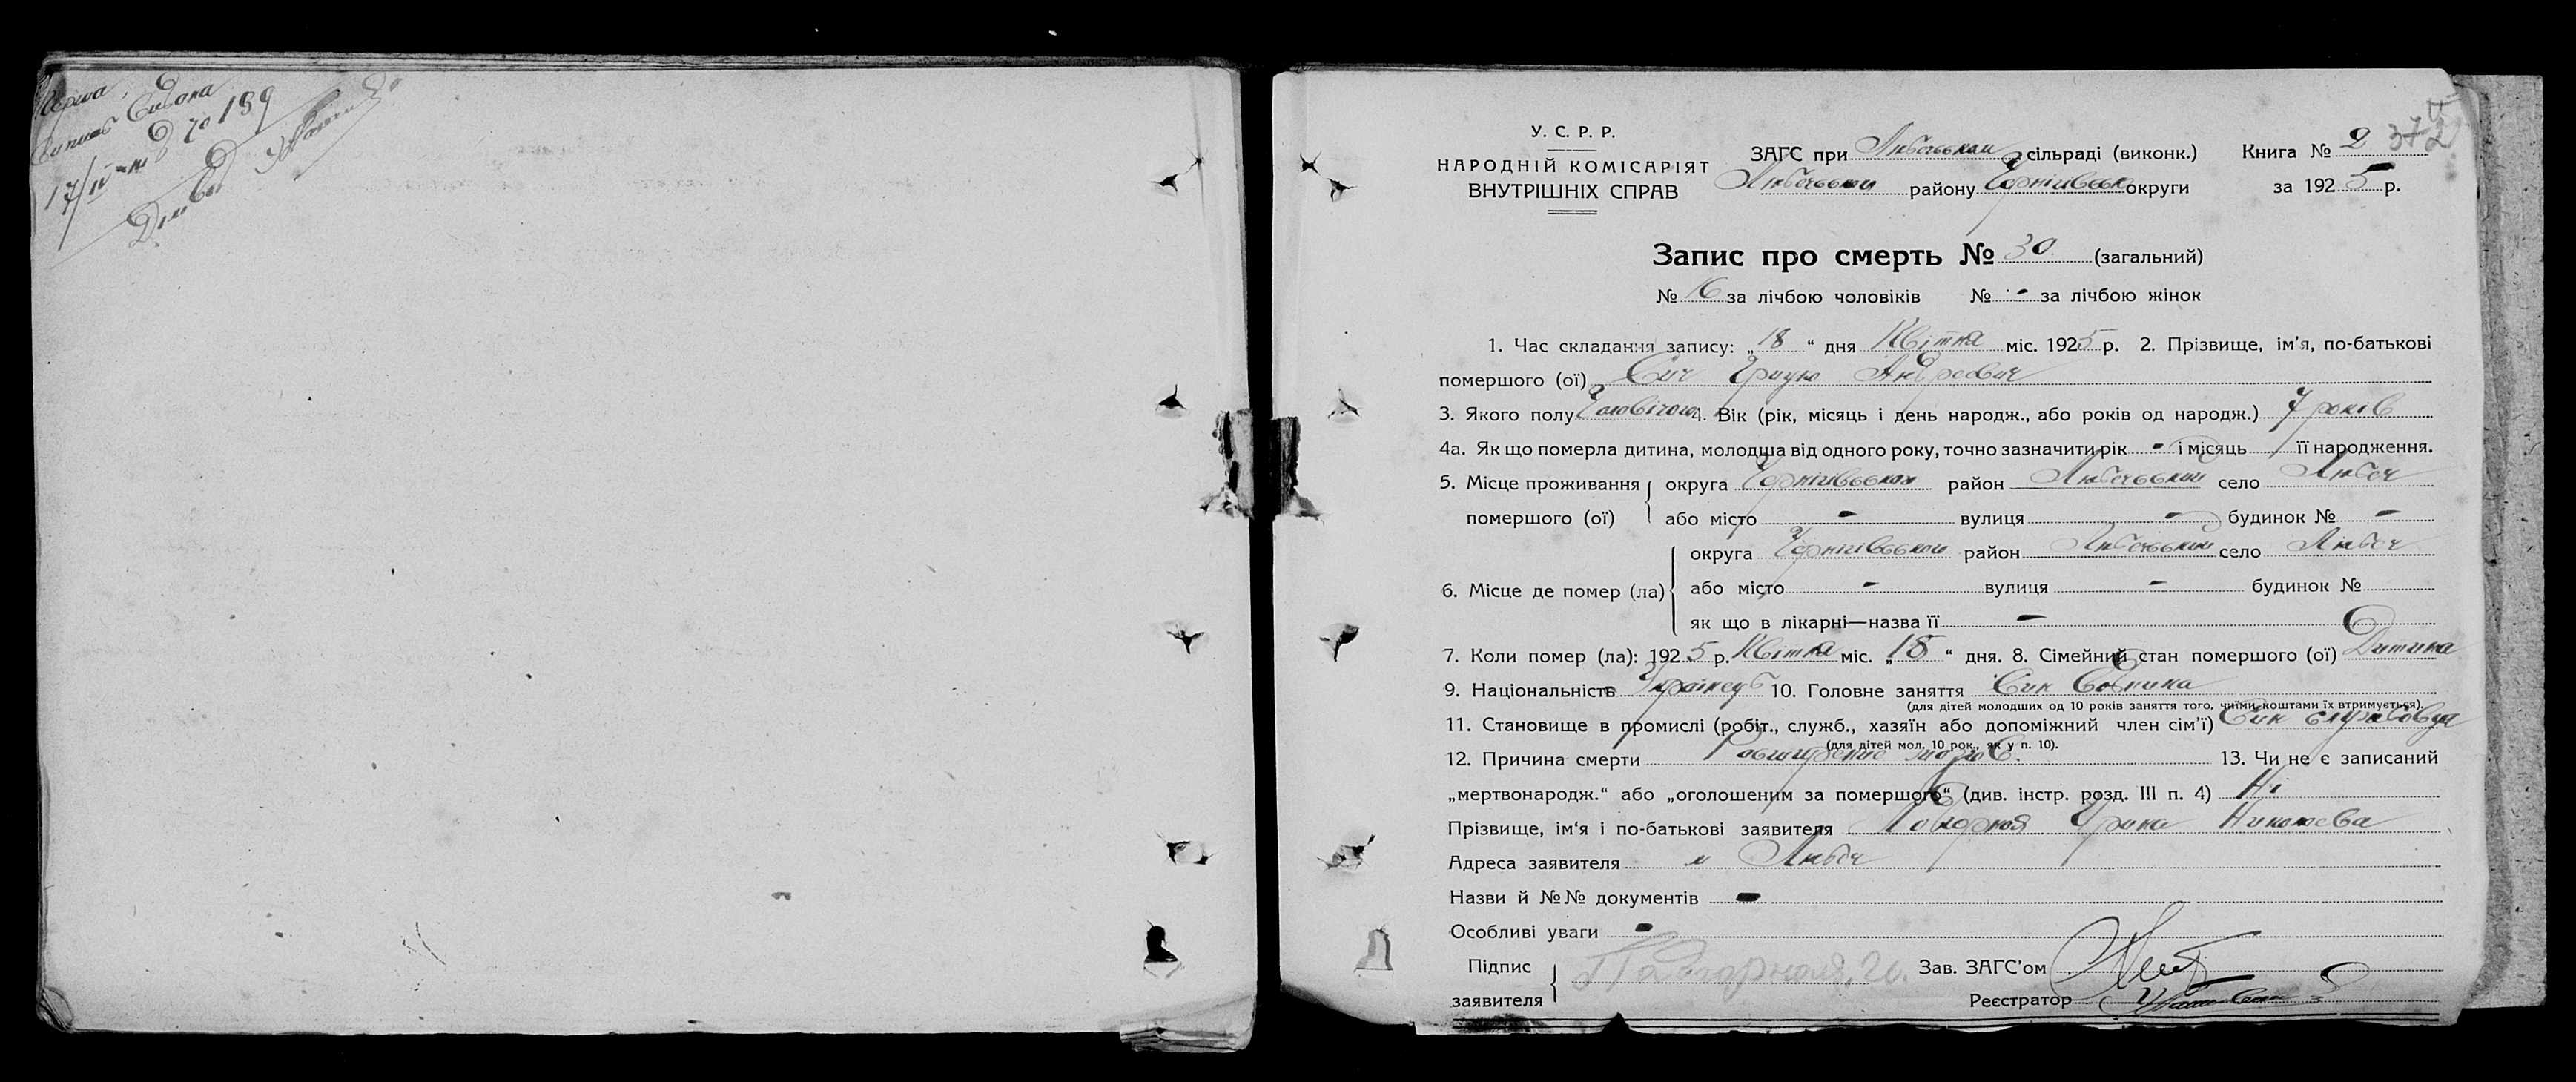 17/IV
№ 199
У. С. Р. Р.
НАРОДНІЙ КОМІСАРІЯТ
ВНУТРІШНІХ СПРАВ
ЗАГС при Любечьком сільраді (виконк.) Книга № 2 372
Любечьком району Чернігівськ округи за 1925 р.
Запис про смерть № 30 (загальний)
№ 16 за лічбою чоловіків № - за лічбою жінок
1. Час складання запису: „18“ дня Квітня міс. 1925 р. 2. Прізвище, ім'я, по-батькові
помершого (ої) Сич Грицко Андреевич
3. Якого полу Чоловічого 4. Вік (рік, місяць і день народж., або років од народж.) 7 років
4а. Як що померла дитина, молодша від одного року, точно зазначити рік - і місяць її народження.
5. Місце проживання округа Чернігівськом район Любечьком село Любеч
помершого (ої) або місто - вулиця - будинок № -
округа Чернігівськом район Любечьком село Любеч
6. Місце де помер (ла) або місто - вулиця - будинок №
як що в лікарні—назва її -
7. Коли помер (ла): 1925 р. Квітня міс. „18“ дня. 8. Сімейний стан помершого (ої) Дитина
9. Національність Украінець 10. Головне заняття Син
(для дітей молодших од 10 років заняття того, чиїми коштами їх втримується).
11. Становище в промислі (робіт., служб., хазяїн або допоміжний член сім'ї) Син службовця
(для дітей мол. 10 рок., як у п. 10).
12. Причина смерти 13. Чи не є записаний
„мертвонародж.“ або „оголошеним за помершого“ (див. інстр. розд. III п. 4) Ні
Прізвище, ім'я і по-батькові заявителя Ирина Николаева
Адреса заявителя м Любеч
Назви й №№ документів -
Особливі уваги -
Підпис Зав. ЗАГС'ом
заявителя Реєстратор